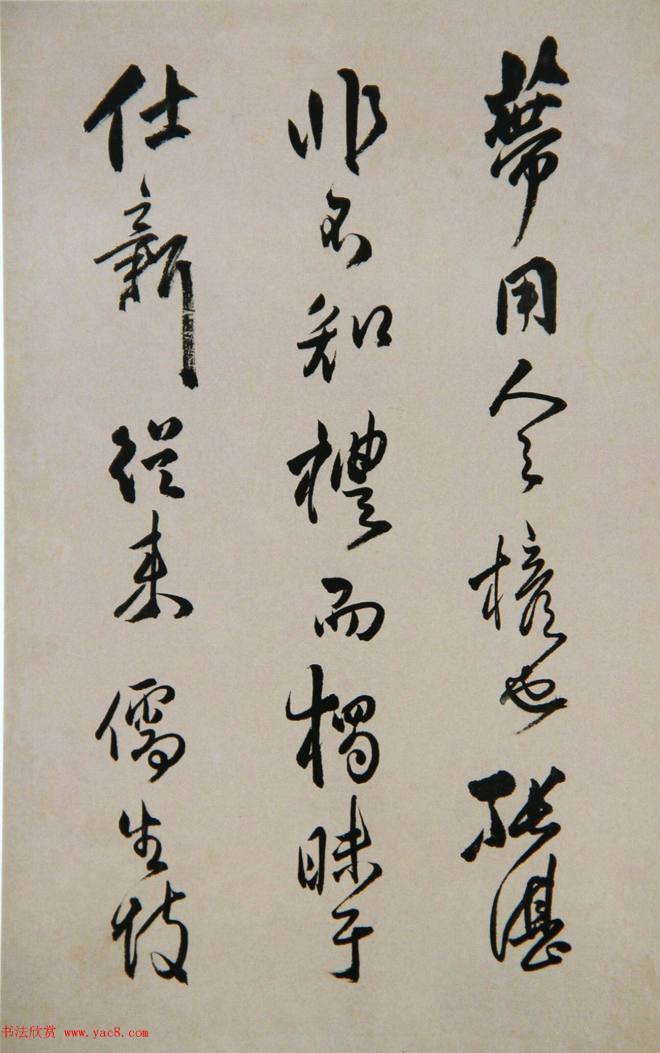 用人之也張湛
非不知禮而昧于
仕新從來儒生忮
书法欣赏 www.yac8.com